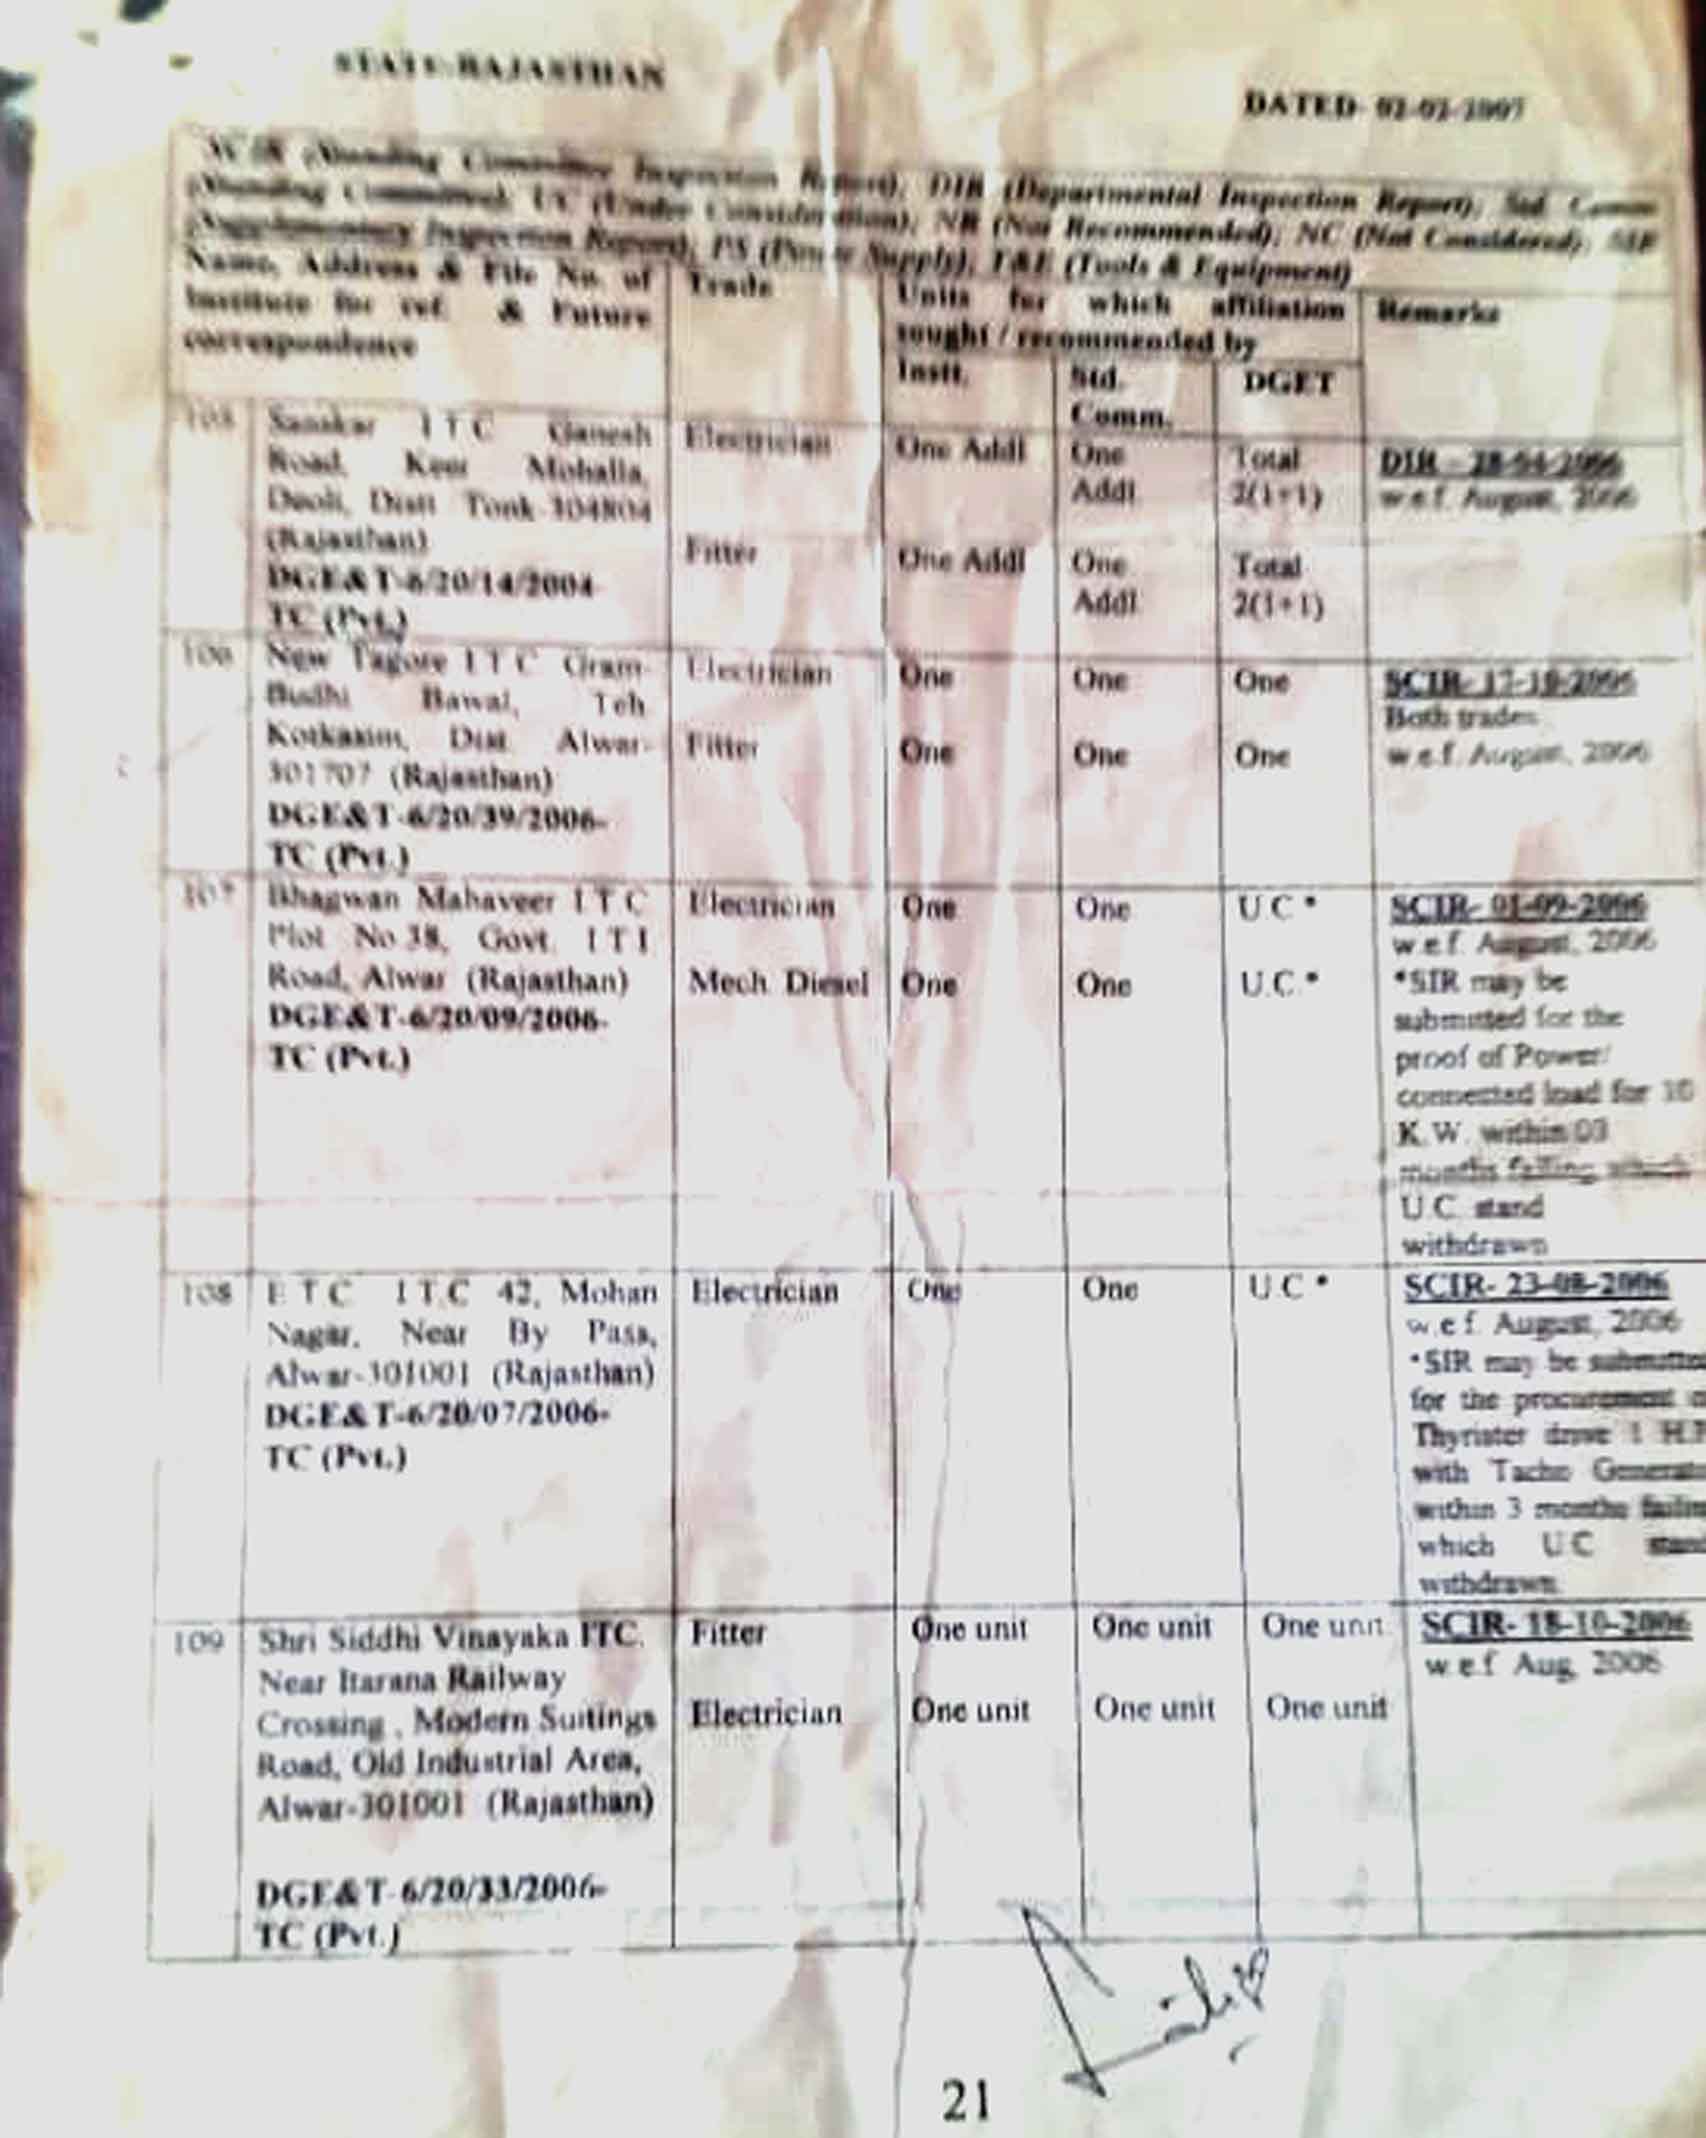 STATE-RAJASTHAN
DATED- 02-02-2007
SCIR (Standing Committee Inspection Report), DIR (Departmental Inspection Report), Std. Comm
(Standing Committee), UC (Under Consideration), NR (Not Recommended), NC (Not Considered), SIR
(Supplimentary Inspection Report), PS (Power Supply), T&E (Tools & Equipment)
Name, Address & File No. of
Institute for ref. & Future
correspondence
Trade
Units for which affiliation
sought / recommended by
Remarks
Instt.
Std.
Comm.
DGET
105
Sanskar I T C Ganesh
Road, Keer Mohalla,
Deoli, Distt Tonk-304804
(Rajasthan)
DGE&T-6/20/14/2004-
TC (Pvt.)
Electrician
One Addl
One
Addl
Total
2(1+1)
DIR - 28-04-2006
w.e.f. August, 2006
Fitter
One Addl
One
Addl
Total
2(1+1)
106
New Tagore I T C Gram-
Budhi Bawal, Teh
Kotkasim, Dist Alwar-
301707 (Rajasthan)
DGE&T-6/20/39/2006-
TC (Pvt.)
Electrician
One
One
One
SCIR- 17-10-2006
Both trades
w.e.f. August, 2006
Fitter
One
One
One
107
Bhagwan Mahaveer I T C
Plot No.38, Govt. I T I
Road, Alwar (Rajasthan)
DGE&T-6/20/09/2006-
TC (Pvt.)
Electrician
One
One
U.C *
SCIR- 01-09-2006
w.e.f. August, 2006
*SIR may be
submitted for the
proof of Power/
connected load for 10
K.W. within 03
months failing which
U.C. stand
withdrawn
Mech. Diesel
One
One
U.C *
108
E T C I.T.C 42, Mohan
Nagar, Near By Pass,
Alwar-301001 (Rajasthan)
DGE&T-6/20/07/2006-
TC (Pvt.)
Electrician
One
One
U.C *
SCIR- 23-08-2006
w.e.f. August, 2006
*SIR may be submitted
for the procurement
Thyrister drive 1 H.P
with Tacho
within 3 months
which U.C
withdrawn
109
Shri Siddhi Vinayaka ITC,
Near Itarana Railway
Crossing , Modern Suitings
Road, Old Industrial Area,
Alwar-301001 (Rajasthan)
DGE&T-6/20/33/2006-
TC (Pvt.)
Fitter
One unit
One unit
One unit
SCIR- 18-10-2006
w.e.f. Aug, 2006
Electrician
One unit
One unit
One unit
21